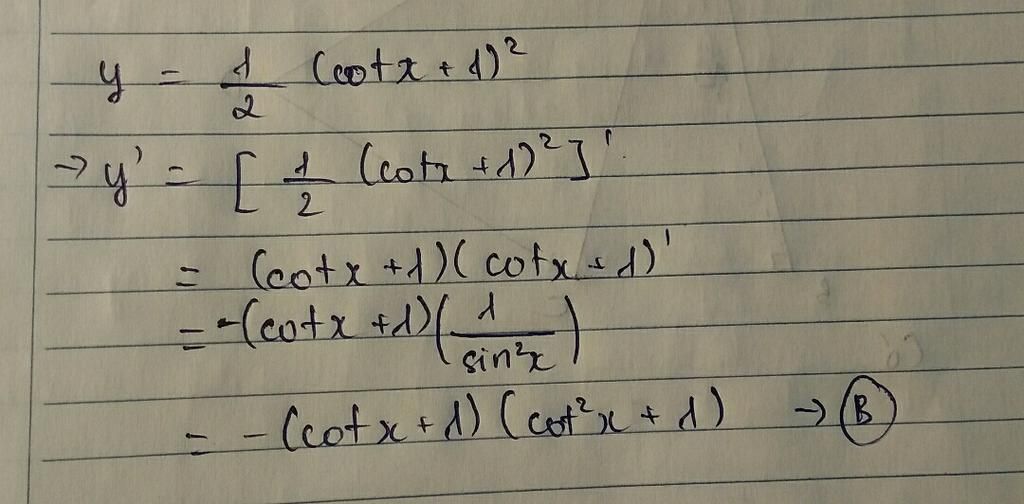 y = 1/2 (cotx + 1)²
→ y' = [ 1/2 (cotx + 1)² ]'
= (cotx + 1)(cotx + 1)'
= -(cotx + 1)(1/sin²x)
= -(cotx + 1)(cot²x + 1) → B